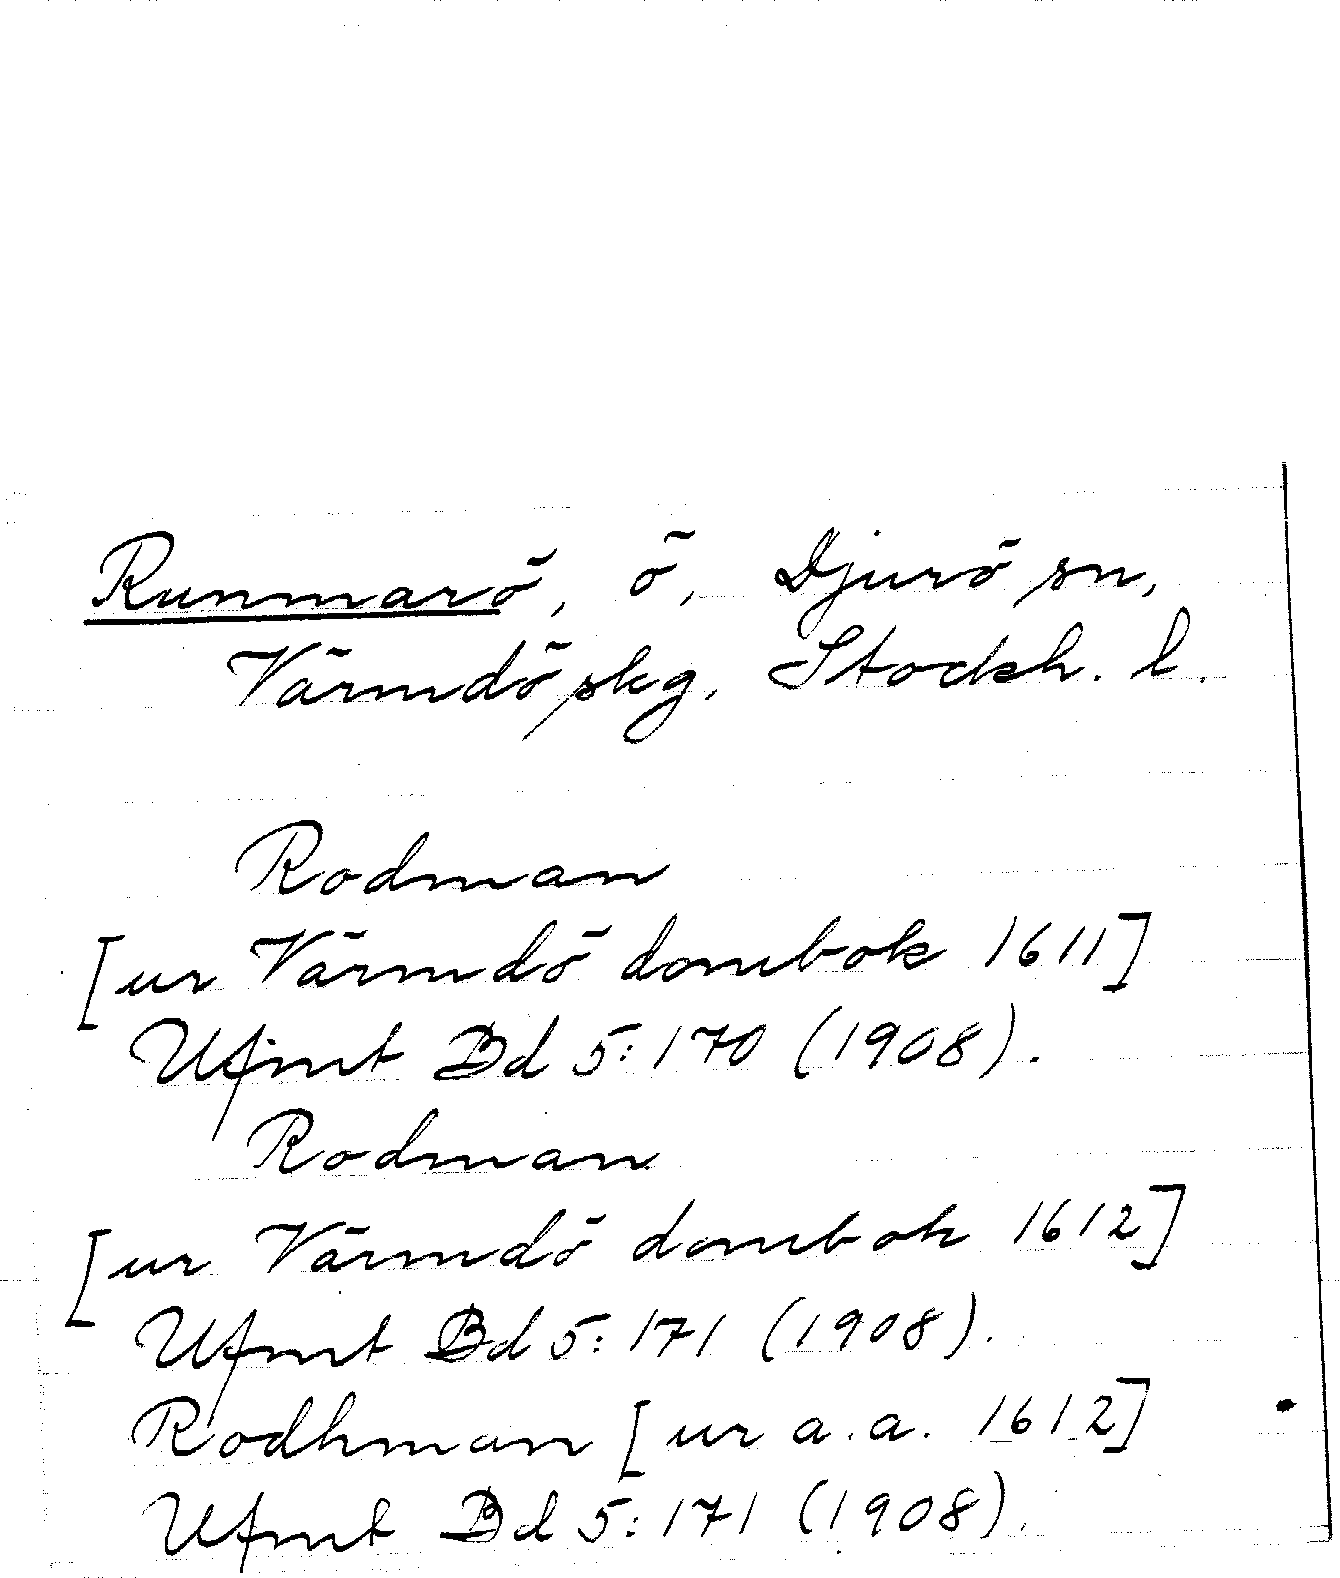 Runmarö, ö, Djurö sn,
Värmdö skg, Stockh. l.
Rodman
[ur Värmdö dombok 1611]
Ufmt Bd 5:170 (1908).
Rodman
[ur Värmdö dombok 1612]
Ufmt Bd 5:171 (1908).
Rodhman [ur a.a. 1612]
Ufmt Bd 5:171 (1908).